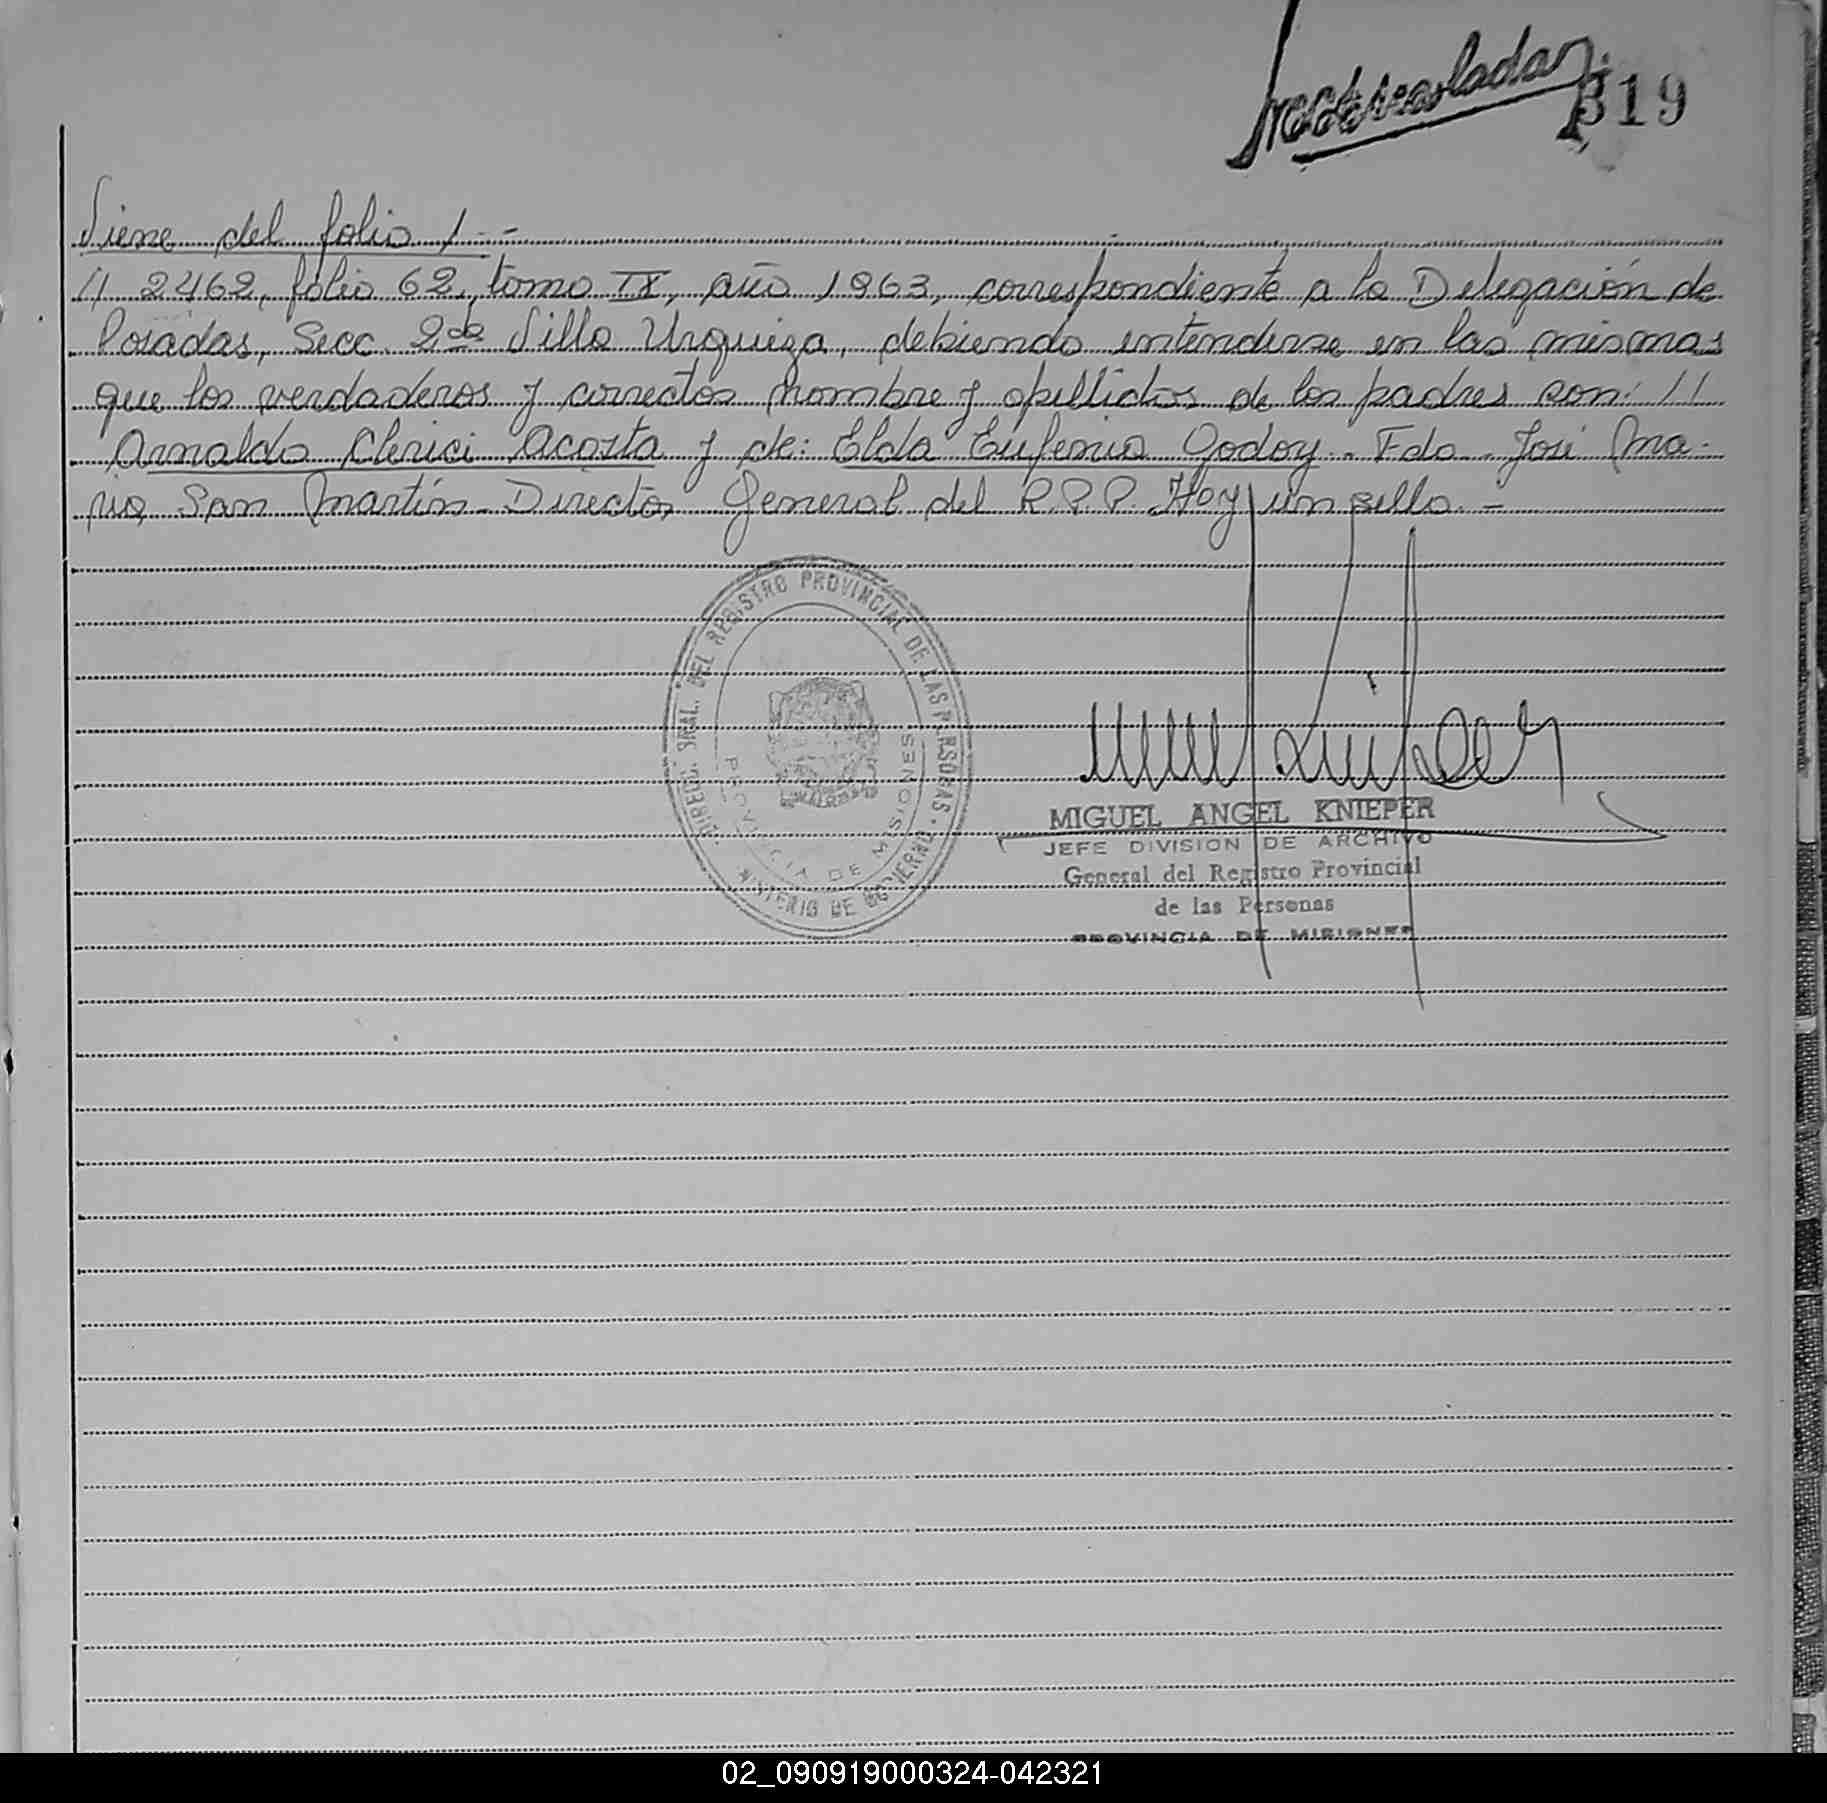 319
Viene del folio 1 - -
// 2462, folio 62, tomo IX, año 1963, correspondiente a la Delegación de
Posadas, Secc. 2da Villa Urquiza, debiendo entenderse en las mismas
que los verdaderos y correctos nombre y apellidos de los padres son: //
Arnaldo Clerici Acosta y de: Elda Eufemia Godoy. - Fdo - José Ma-
ria San Martín - Director General del R.P.P. Hay un sello. -
DIRECC. GRAL. DEL REGISTRO PROVINCIAL DE LAS PERSONAS
MINISTERIO DE GOBIERNO
PROVINCIA DE MISIONES
MIGUEL ANGEL KNIEPER
JEFE DIVISION DE ARCHIVO
General del Registro Provincial
de las Personas
PROVINCIA DE MISIONES
02_090919000324-042321